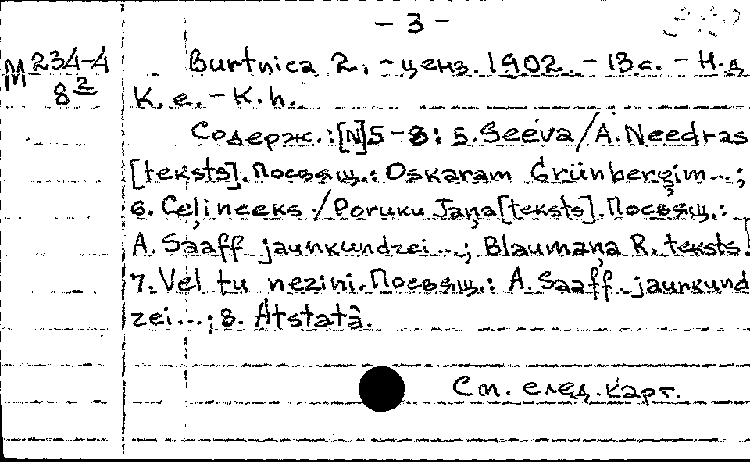 - 3 -
М 234-4
8 2
Burtnica 2. - ценз. 1902. - 13 с. - Н.д.
K. e. - K. h.
Содерж.: [N]5-8: 5. Seeva / A. Needras
[teksts]. Посвящ.: Oskaram Grünbergim...;
6. Ceļineeks / Poruku Jaņa [teksts]. Посвящ.:
A. Saaff jaunkundzei...; Blaumaņa R. teksts.
7. Vel tu nezini. Посвящ.: A. Saaff jaunkund
zei...; 8. Atstatâ.
См. след. карт.